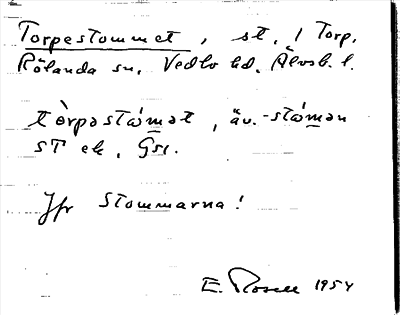 Torpestommet, st. / Torp.
Rölanda sn. Vedbo hd. Älvsb. l.
tòrpəstå̀mət, äv. -stå̀mən
ST ek, Gsr.
Jfr Stommarna!
E. Rosell 1954